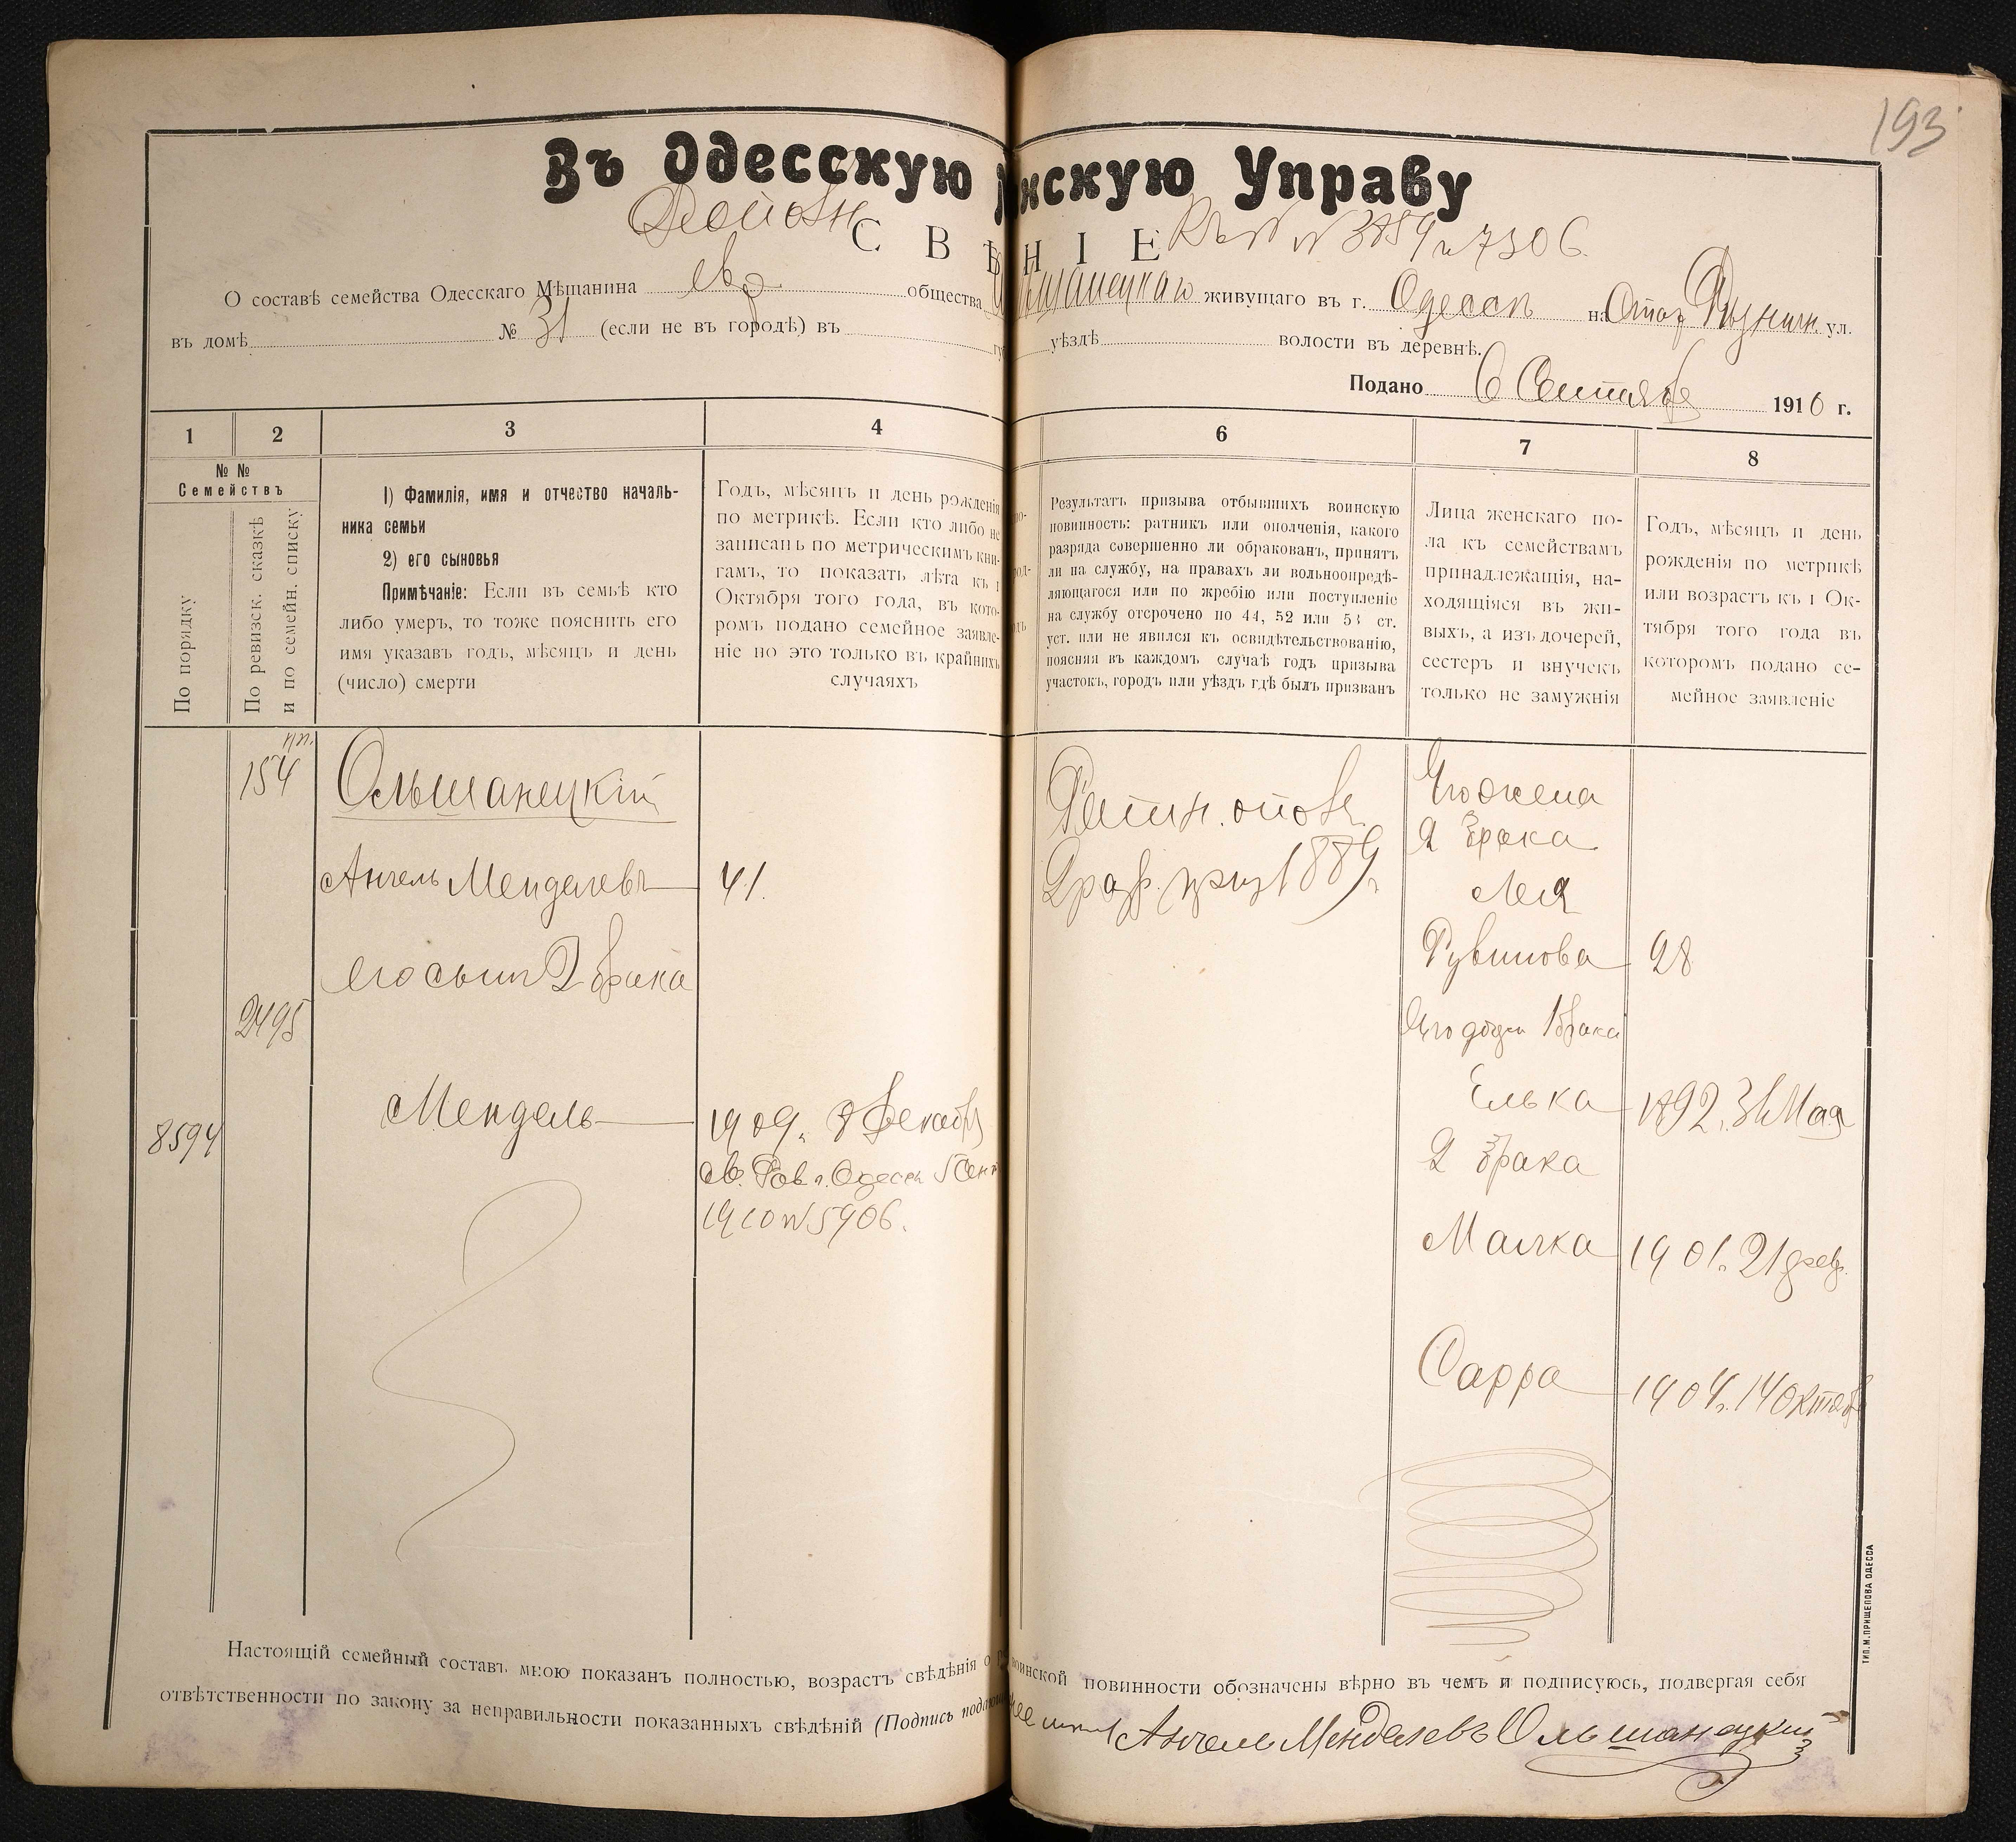 193
Въ Одесскую нскую Управу
СВѢ НІЕ
О составѣ семейства Одесскаго Мѣщанина евр общества Ольшанецкаго живущаго въ г. Одессѣ на ул.
въ домѣ № 31 (если не въ городѣ) въ уѣздѣ волости въ деревнѣ.
Подано 6 Сентября 1910 г.
1 2 3 4 6 7 8
№ №
Семействъ
По порядку
По ревизск. сказкѣ
и по семейн. списку
1) Фамилія, имя и отчество началь-
ника семьи
2) его сыновья
Примѣчаніе: Если въ семьѣ кто
либо умеръ, то тоже пояснить его
имя указавъ годъ, мѣсяцъ и день
(число) смерти
Годъ, мѣсяцъ и день рожденія
по метрикѣ. Если кто либо не
записанъ по метрическимъ кни-
гамъ, то показать лѣта къ 1
Октября того года, въ кото-
ромъ подано семейное заявле-
ніе но это только въ крайнихъ
случаяхъ
Результатъ призыва отбывшихъ воинскую
повинность: ратникъ или ополченія, какого
разряда совершенно ли обракованъ, принятъ
ли на службу, на правахъ ли вольноопредѣ-
ляющагося или по жребію или поступленіе
на службу отсрочено по 44, 52 или 53 ст.
уст. или не явился къ освидѣтельствованію,
поясняя въ каждомъ случаѣ годъ призыва
участокъ, городъ или уѣздъ гдѣ былъ призванъ
Лица женскаго по-
ла къ семействамъ
принадлежащія, на-
ходящіяся въ жи-
выхъ, а изъ дочерей,
сестеръ и внучекъ
только не замужнія
Годъ, мѣсяцъ и день
рожденія по метрикѣ
или возрастъ къ 1 Ок-
тября того года въ
которомъ подано се-
мейное заявленіе
154
Ольшанецкій
Ангель Менделевъ 41.
его сынъ 2 брака
2495
8594
Мендель 1909. 8 Декабр
св. Рав. г. Одессы 5 Сент
1910 № 5906.
Ратн. опол
2 раз. приз 1889 г.
Его жена
2 брака
Лея
Рувинова 28
Его дочери 1 брака
Елька 1892. 31 Мая
2 брака
Малка 1901. 21 фев.
Сарра 1904 г. 14 Октяб
Настоящій семейный составъ мною показанъ полностью, возрастъ свѣдѣнія о воинской повинности обозначены вѣрно въ чемъ и подписуюсь, подвергая себя
отвѣтственности по закону за неправильности показанныхъ свѣдѣній (Подпись
Ангель Менделевъ Ольшанецкій
ТИП. М. ПРИЩЕПОВА ОДЕССА